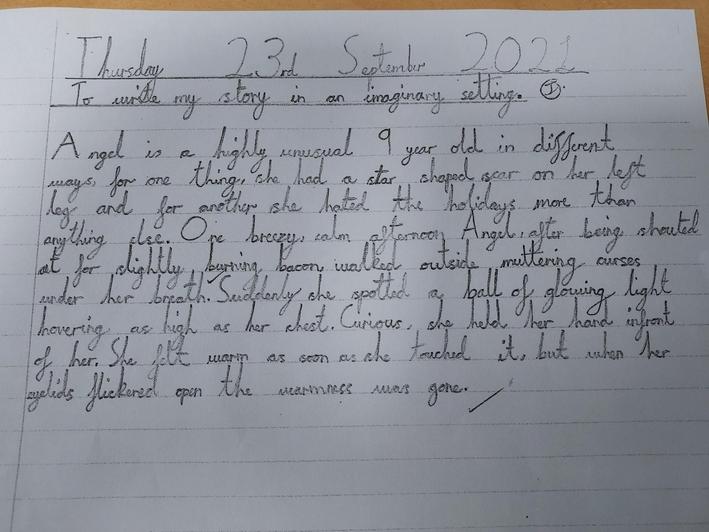 Thursday 23rd September 2021
To write my story in an imaginary setting. I
Angel is a highly unusual 9 year old in different
ways, for one thing, she had a star shaped scar on her left
leg and for another she hated the holidays more than
anything else. One breezy, calm afternoon, Angel, after being shouted
at for slightly burning bacon walked outside muttering curses
under her breath. Suddenly she spotted a ball of glowing light
hovering as high as her chest. Curious, she held her hand infront
of her. She felt warm as soon as she touched it, but when her
eyelids flickered open the warmness was gone.